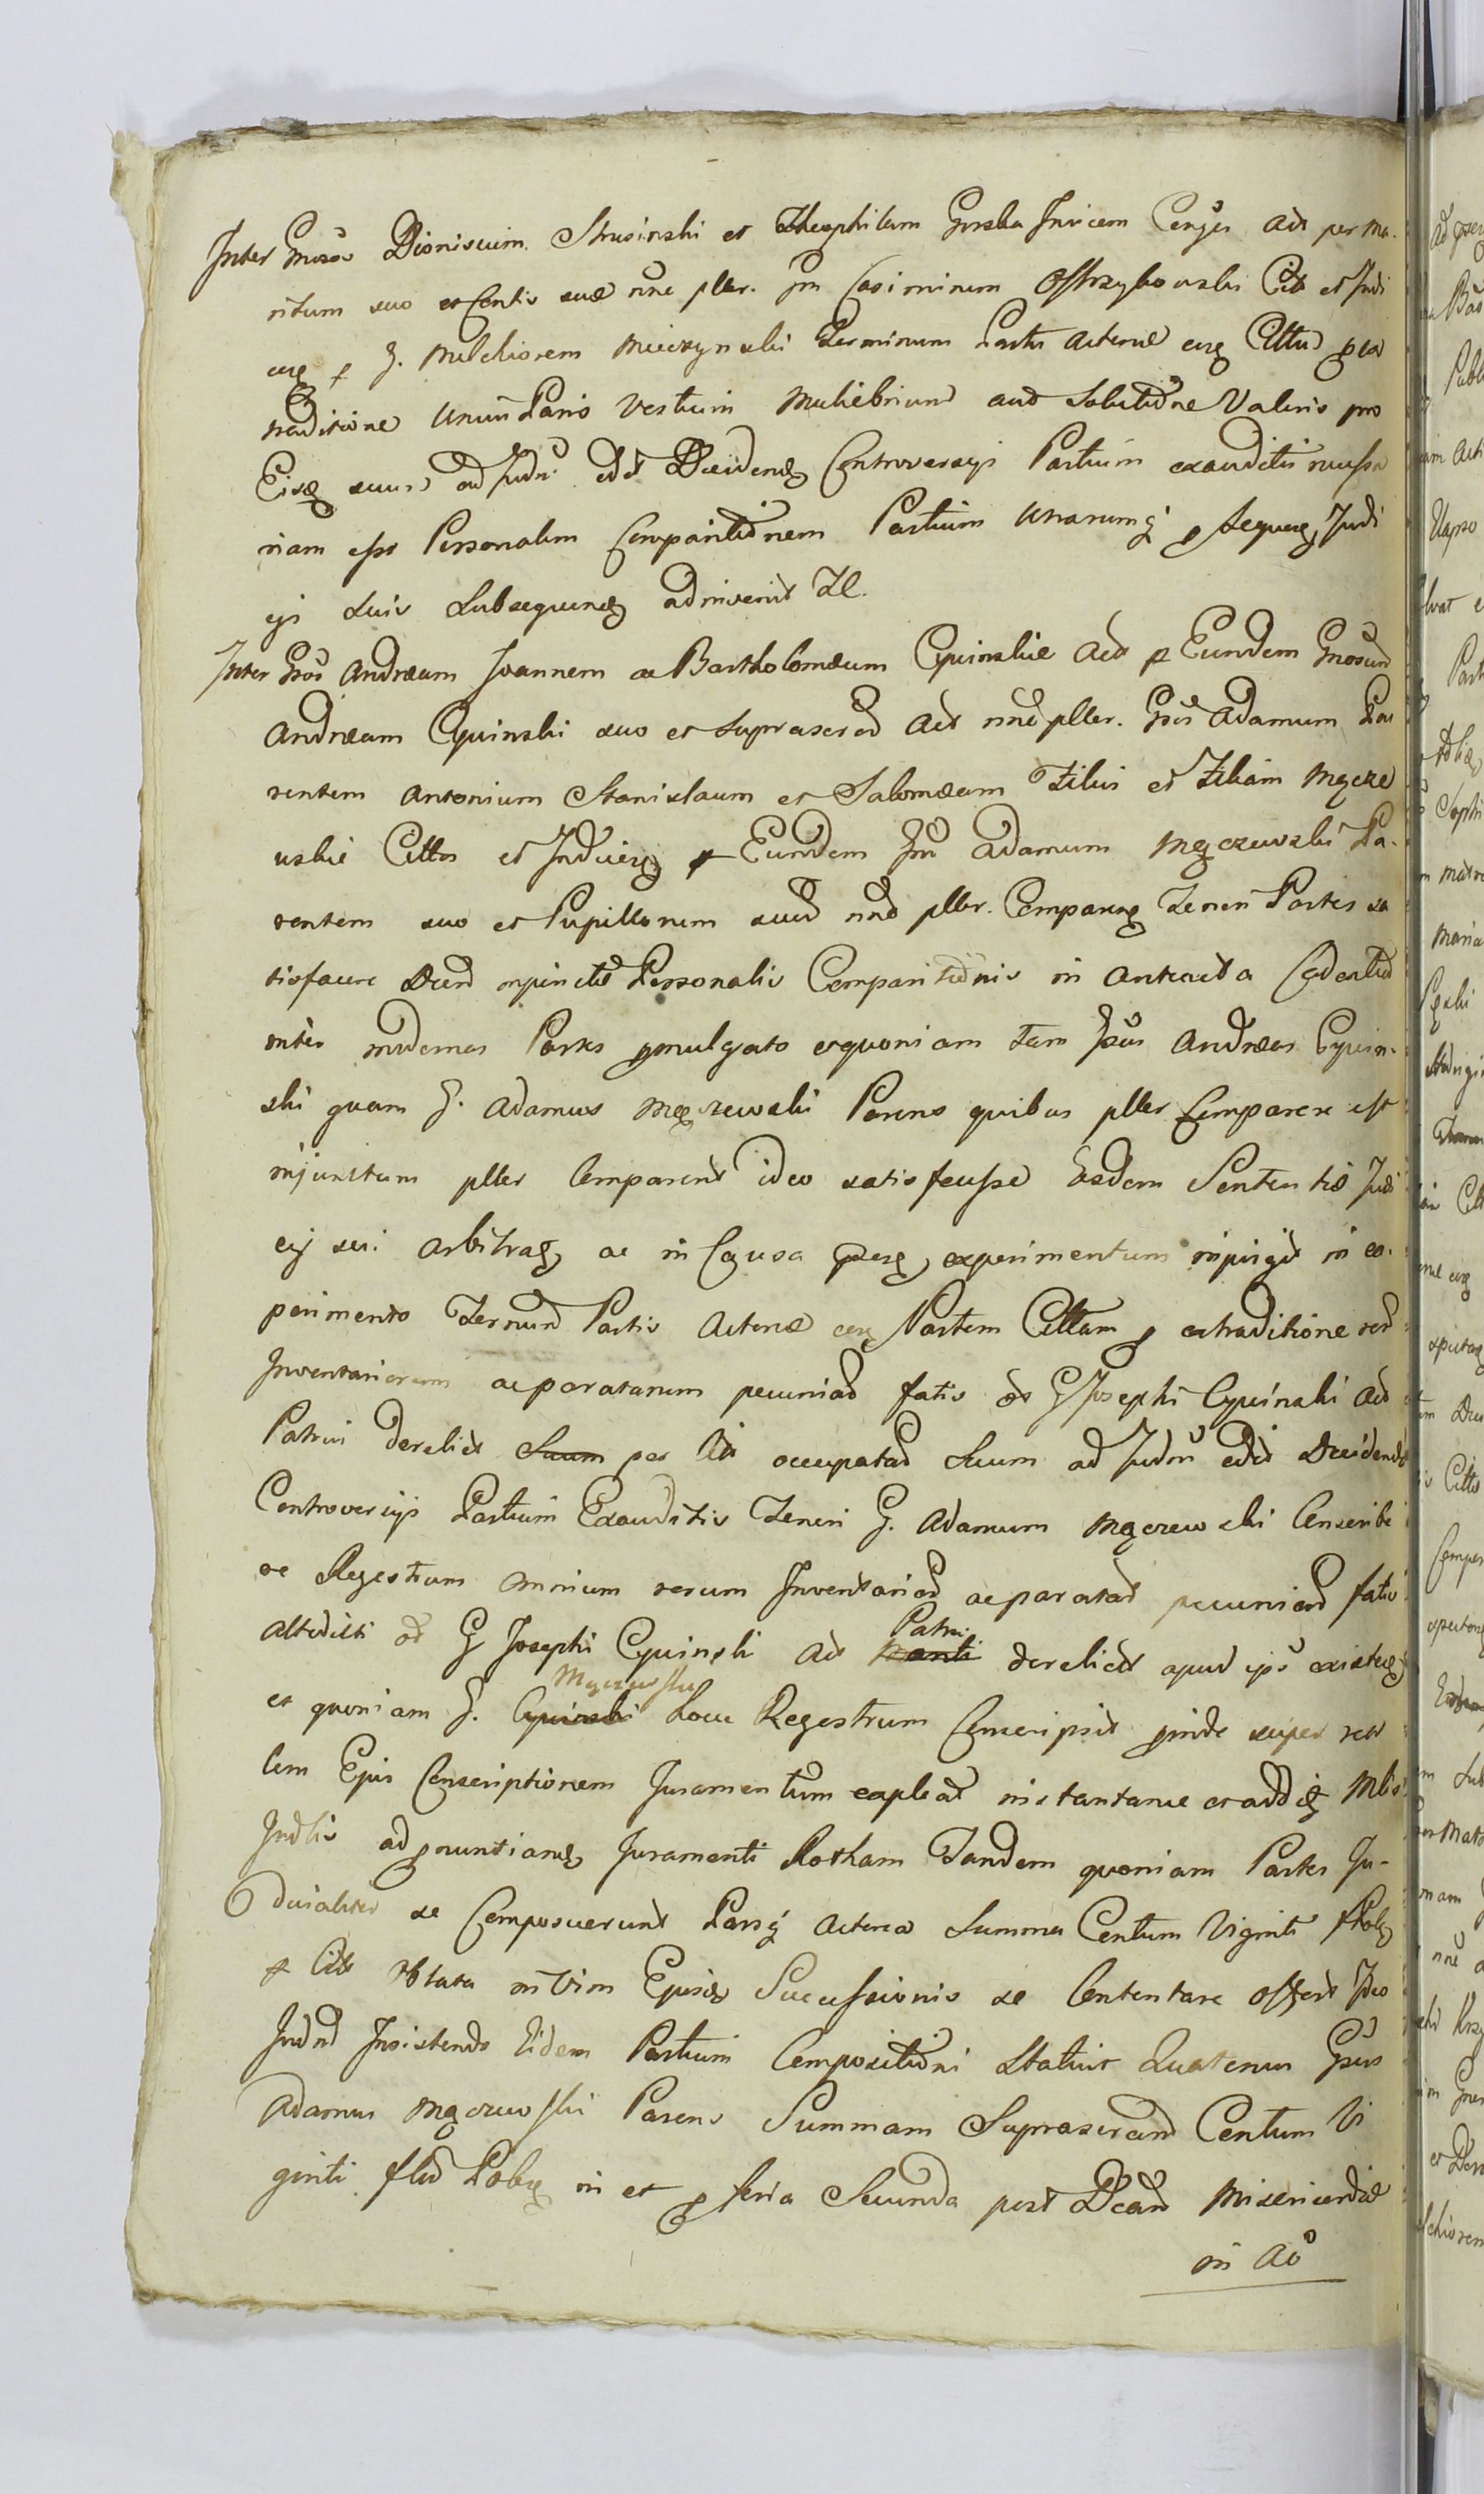 Inter Gnosos Dionisium Strusinski et Theophilam Gorska Invicem Conges Act per Ma-
ritum suo et Contis suæ nne pller. Gm Casimirum Ostrzykowski Citt et Judi
ceq p G. Melchiorem Mieczynski Terminum Partis Actoreæ erg Cittud pro
traditione Unius Paris Vestium Muliebrium aut Solutione Valoris pro
Eisq suum ad Judm edit Decidenq Controversys Partium exauditis necessa
riam esse Personalem Comparitionem Partium Utrarumq p Sequeq Judi
cys suis Subsequenq adinvenit Zl.
Inter Gsos Andream Joannem ac Bartholomæum Cywinskie Act p Eundem Gnosum
Andream Cywinski suo et suprascrod Act nne pller. Gsos Adamum Pa
rentem Antonium Stanislaum et Salomæam Filios et Filiam Mącze
wskie Cittos et Indvierg p Eundem Gm Adamum Mączewski Pa-
rentem suo et Pupillorum suod nne pller. Comparing Teneri Partes sa
tisfacere Decreto injuncto Personalis Comparitionis in anteacta Cadentia
inter modernas Partes pmulgato et quoniam tam Gsus Andreas Cywin-
ski quam G. Adamus Mączewski Parens quibus pller Comparere est
injunctum pller Comparent ideo satisfecisse Easdem Sententiæ Judi
cy sui arbitrag ac in Causa pserg experimentum injungit in ex-
perimento Terminum Partis Actoreæ erg Partem Cittam p extraditione rer
Inventariorum ac paratarum pecuniad fatis od G Josephi Cywinski Act
Patrui derelict Suam per Citt occupatad Suum ad Judm edit Decidendo
Controversys Partium Exauditis Teneri G. Adamum Mączewski Conscribe
re Regestrum omnium rerum Inventariod ac paratad pecuniad fatis
altedicti od G Josephi Cywinski Act Patrui derelict apud ips existeq
et quoniam G. Mączewski hocce Regestrum Conscripsit proinde super rea
lem Ejus Conscriptionem Juramentum expleat instantanee et addit Mlis
Indlis ad pnuntianq Juramenti Rotham Tandem quoniam Partes Ju-
dicialiter se Composuerunt Parsq Actorea Summa Centum Viginti fl Polq
p Citt oblata in Vim Ejusdt Successionis se Contentare offert Ideo
Judm Insistendo Eidem Partium Compositioni Statuit Quatenus Gsus
Adamus Mączewski Parens Summam Suprascram Centum Vi
ginti flor Polq in et p feria Secunda post Dcam Misericordiæ
in Ao